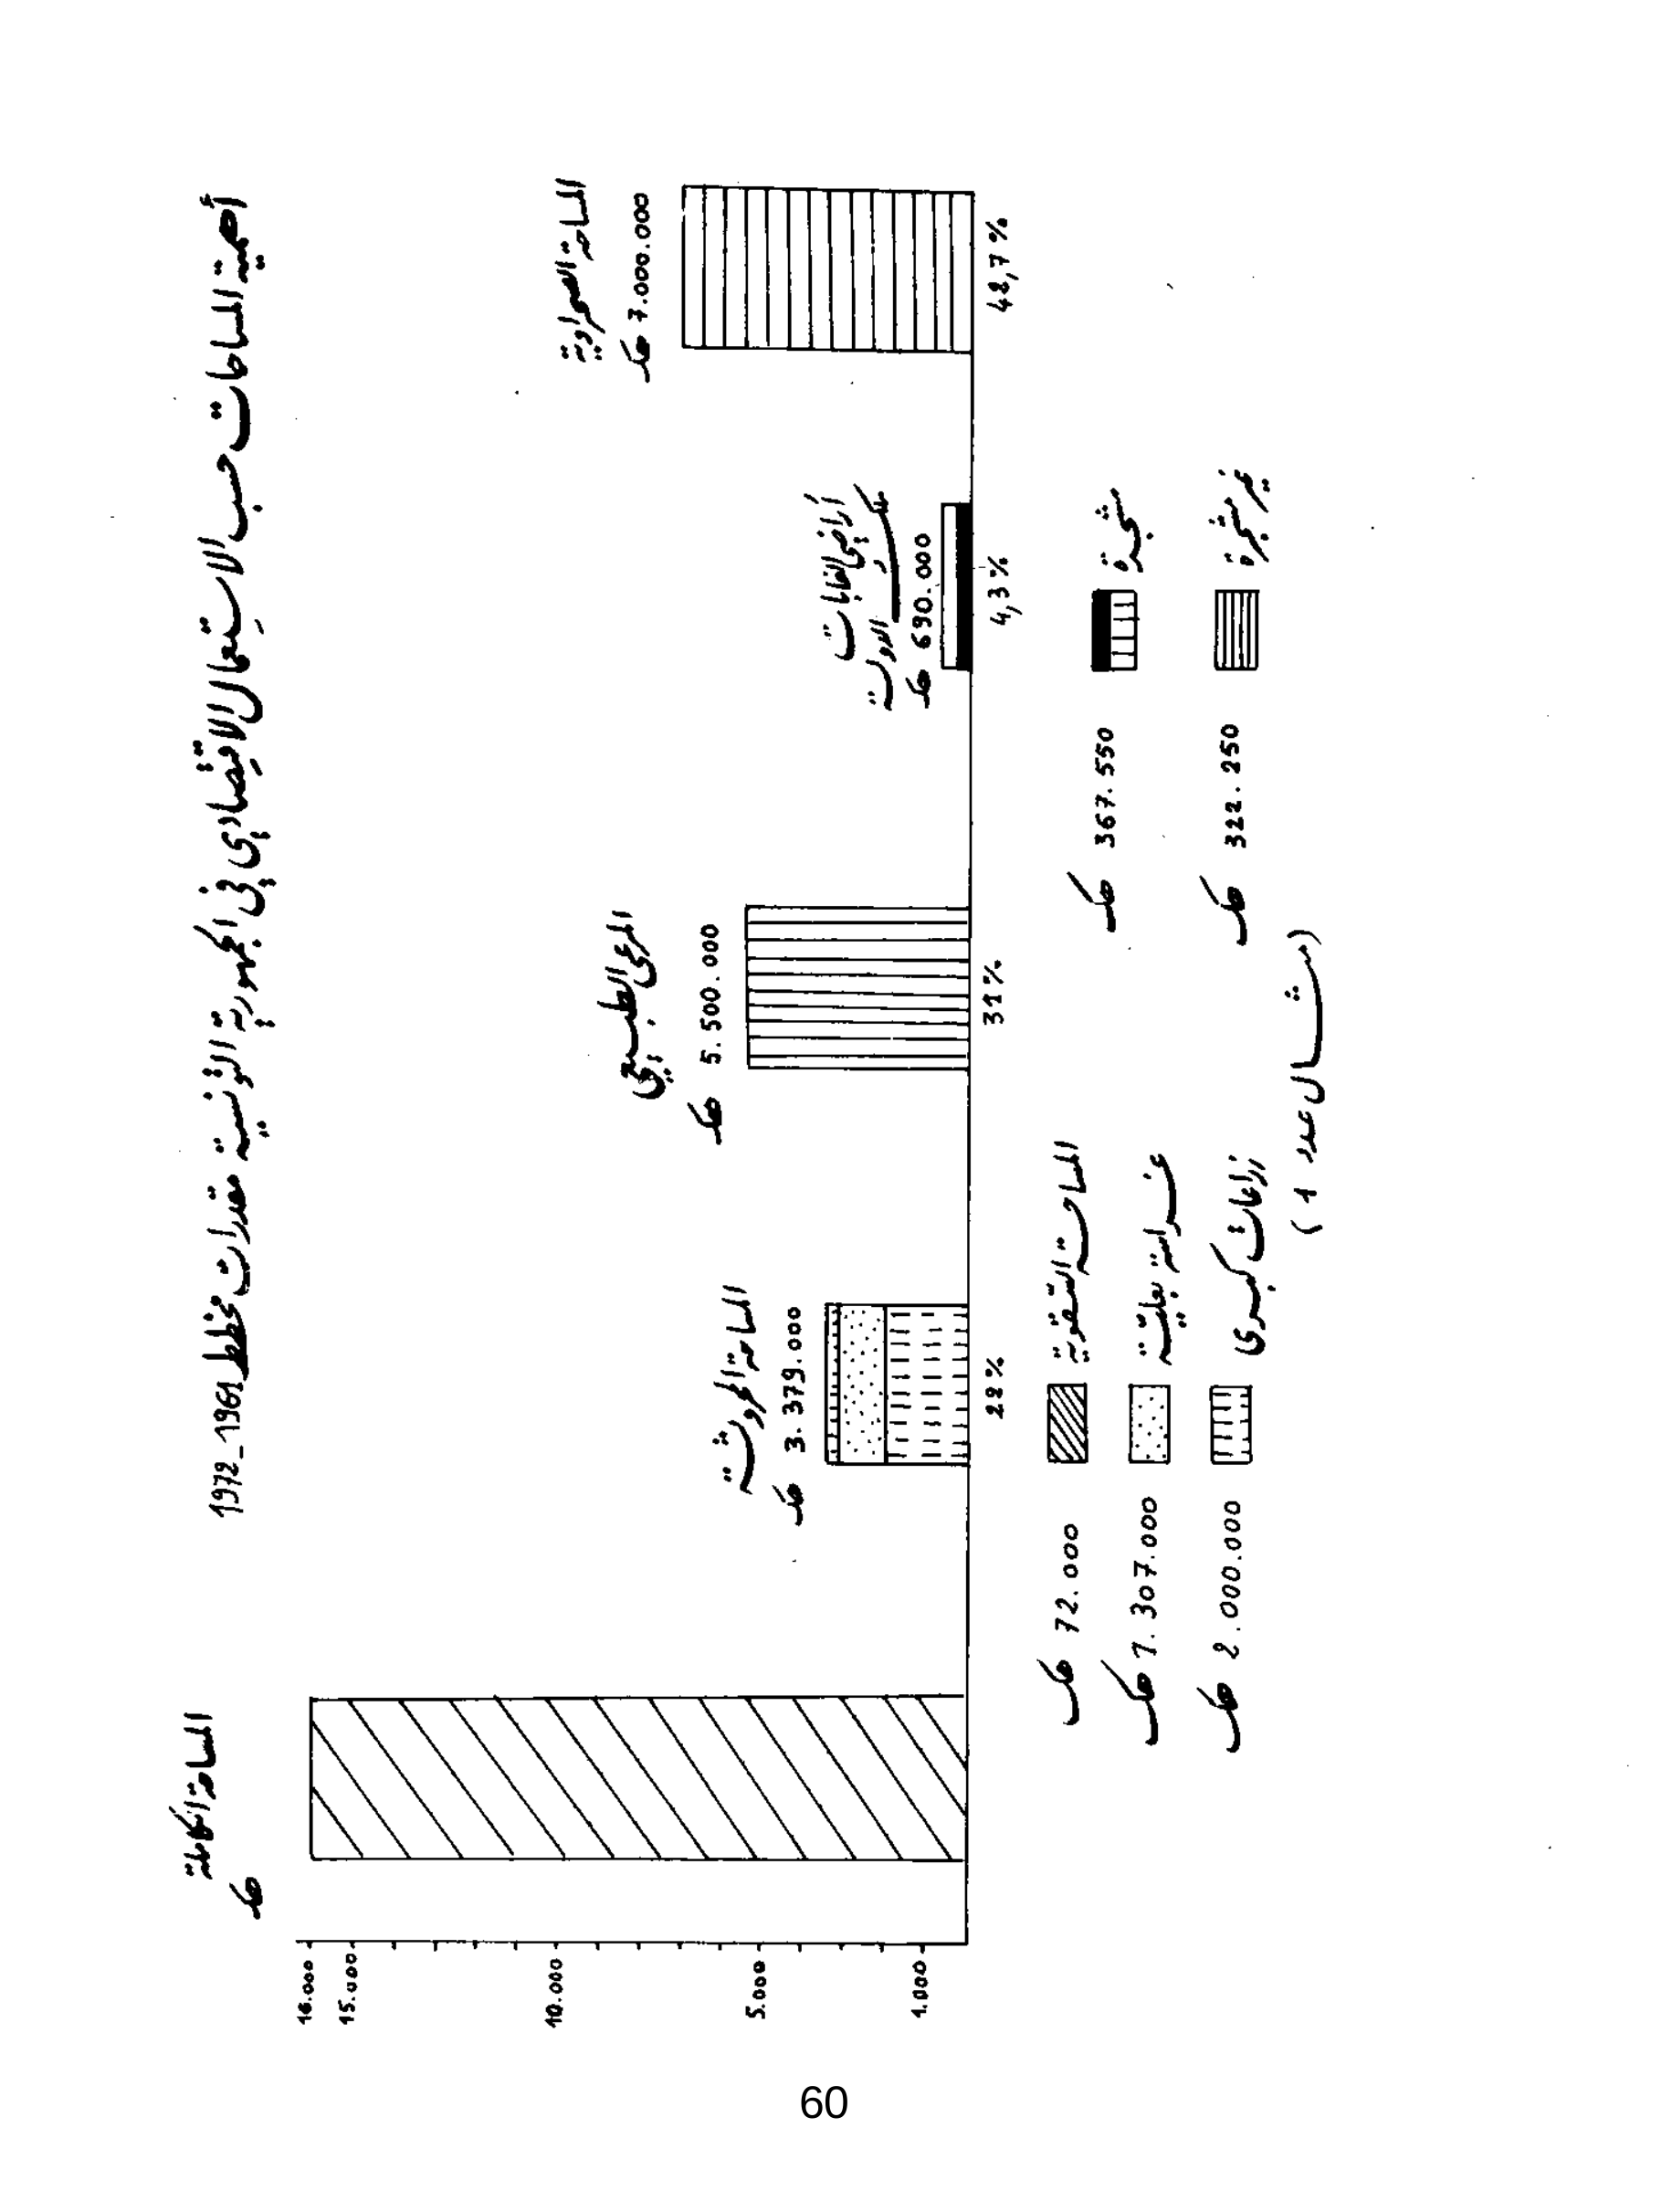 أهمية المساحات حسب الاستعمال الاقتصادي في الجمهورية التونسية مقدرات مخطط 1961_1972
المساحة الكاملة
هك
16.000
15.000
10.000
5.000
1.000
المساحة المحروثة
3.379.000 هك
22%
المرعى الطبيعي
5.500.000 هك
31%
أراضي الغابات
ملك الدولة
690.000 هك
4,3%
المساحة الصحراوية
7.000.000 هك
42,7%
المساحة السقوية
72.000 هك
غراسة بعلية
1.307.000 هك
زراعات كبرى
2.000.000 هك
مشجرة
367.550 هك
غير مشجرة
322.250 هك
(مثال عدد 1)
60